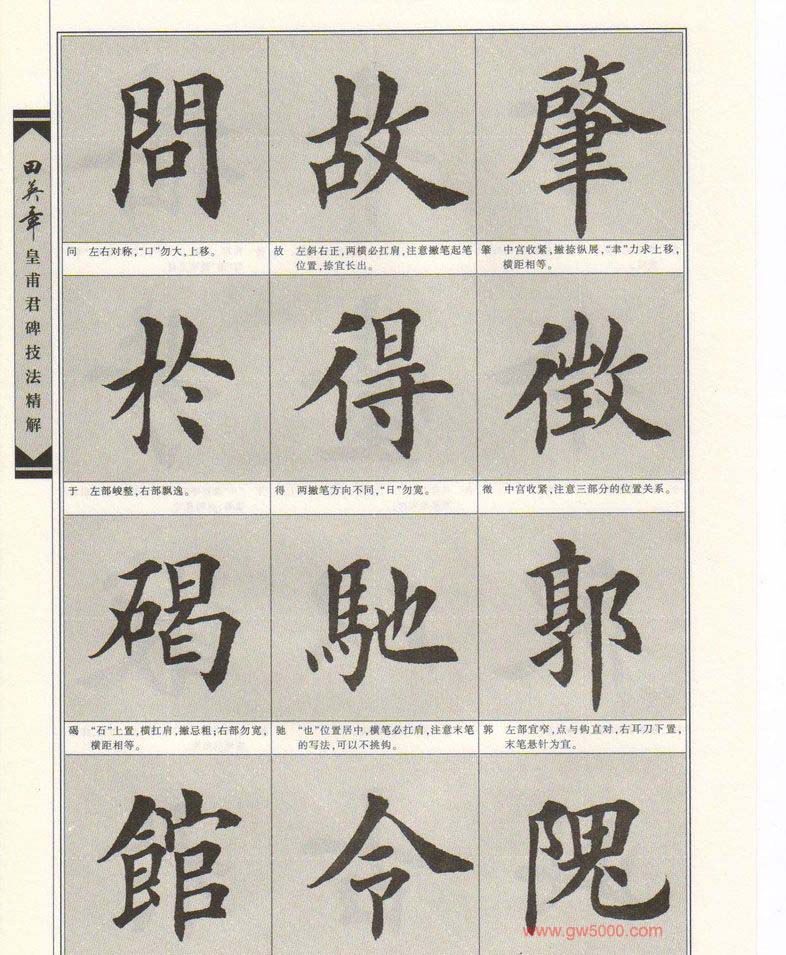 田英章
皇甫君碑技法精解
問
故
肇
问 左右对称，“口”勿大，上移。
故 左斜右正，两横必扛肩，注意撇笔起笔
位置，捺宜长出。
肇 中宫收紧，撇捺纵展，“聿”力求上移，
横距相等。
於
得
徵
于 左部峻整，右部飘逸。
得 两撇笔方向不同，“日”勿宽。
徵 中宫收紧，注意三部分的位置关系。
碣
馳
郭
碣 “石”上置，横扛肩，撇忌粗；右部勿宽，
横距相等。
驰 “也”位置居中，横笔必扛肩，注意末笔
的写法，可以不挑钩。
郭 左部宜窄，点与钩直对，右耳刀下置，
末笔悬针为宜。
館
令
隗
www.gw5000.com